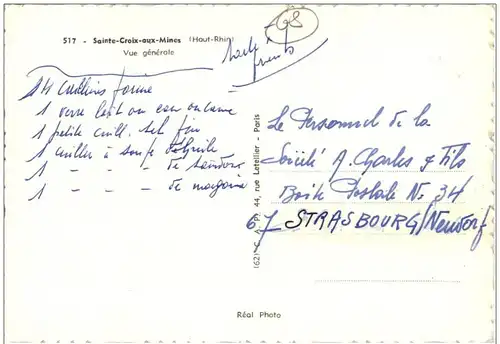 517 - Sainte-Croix-aux-Mines (Haut-Rhin)
Vue générale
GS
14 cuillères farine
1 verre lait ou eau ou
1 petite cuill. sel fin
1 cuiller à soupe d'huile
1 - - - de
1 - - - de
1621 C. A. P. 44, rue Letellier - Paris
Le Personnel de la
Société A. Charles & Fils
Boite Postale N. 34
67 STRASBOURG/Neudorf
Réal Photo